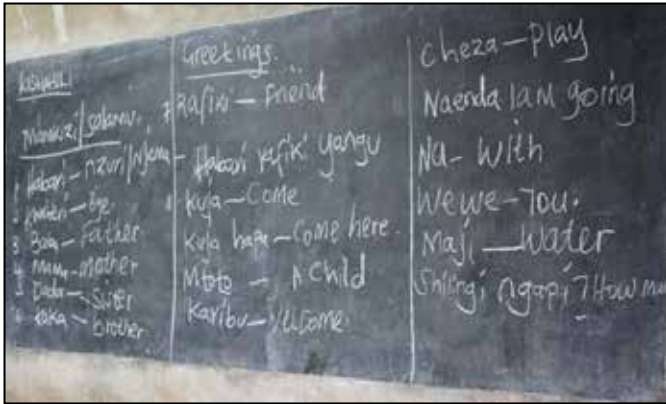 KISWAHILI
Maamkizi/salamu.
1 Habari - nzuri/njema
2 kwaheri - bye.
3 Baba - Father
4 Mama - mother
5 Dada - Sister
6 Kaka - brother
Greetings.
7 Rafiki - Friend
Habari rafiki yangu
8 Kuja - Come
Kuja hapa - Come here.
Mtoto - A Child
Karibu -
Cheza - Play
Naenda Iam going
Na - With
Wewe - You.
Maji - Water
Shilingi ngapi? How